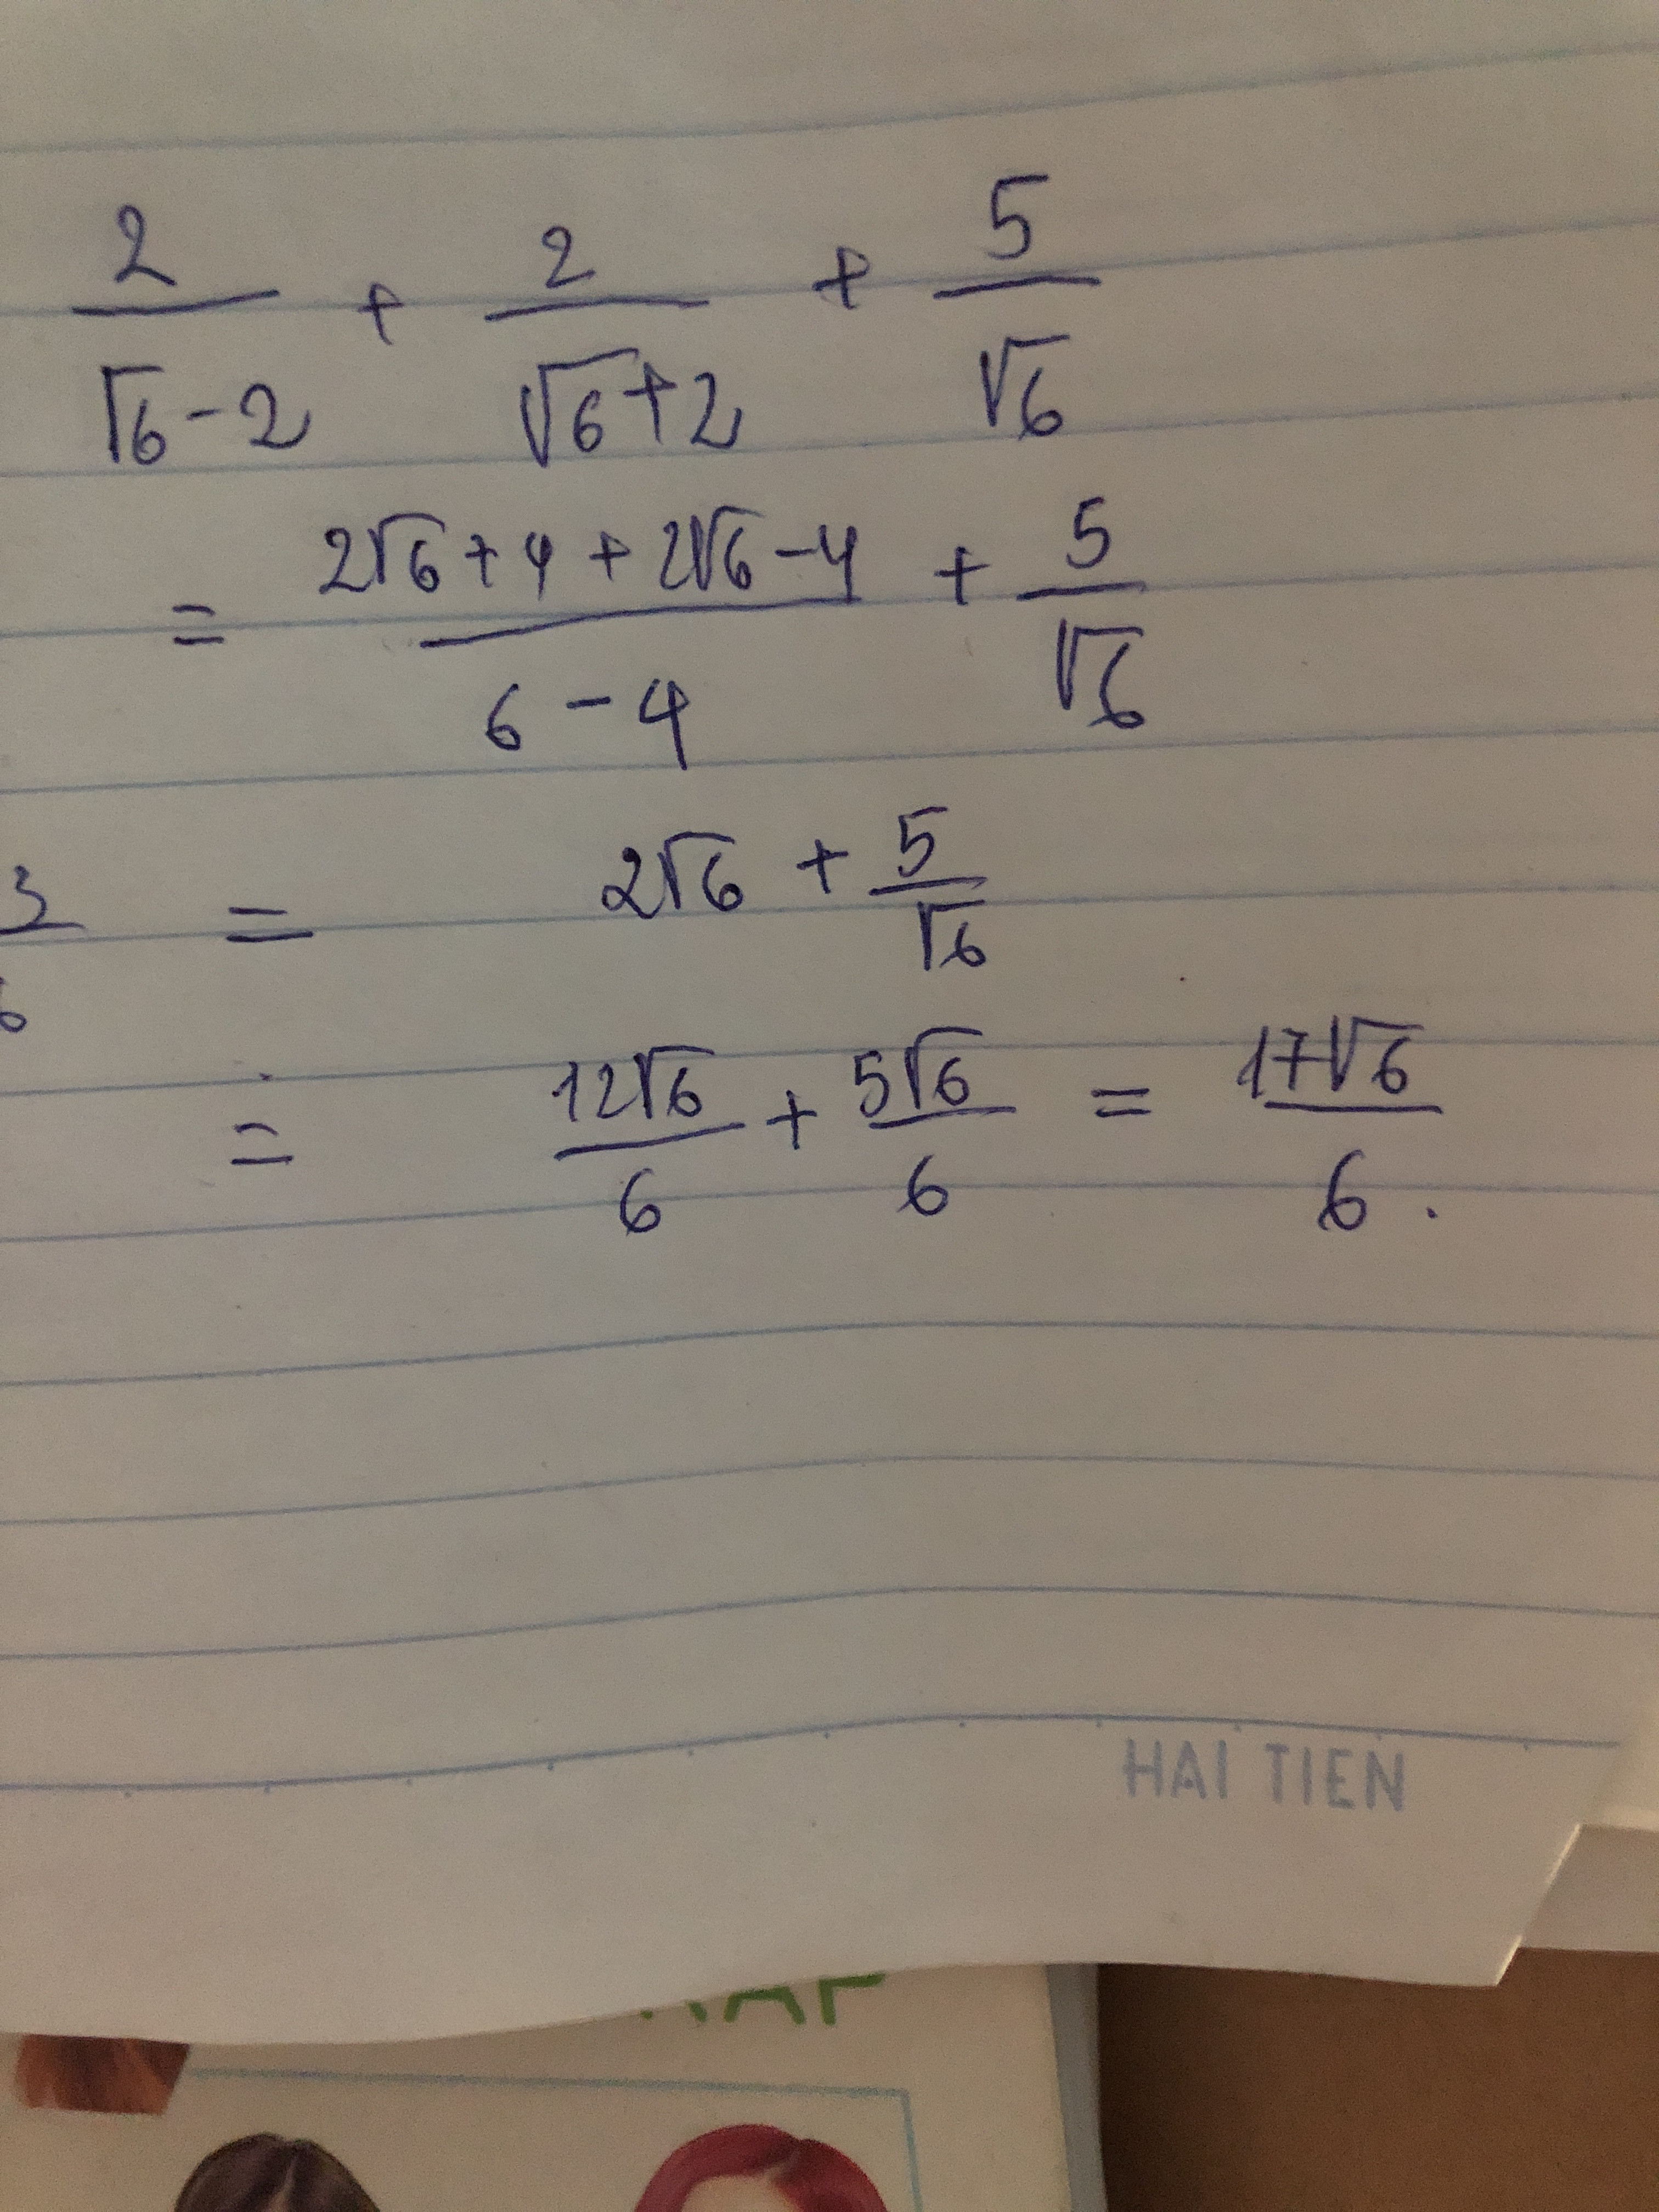 2/(√6-2) + 2/(√6+2) + 5/√6
= (2√6+4+2√6-4)/(6-4) + 5/√6
3/6 = 2√6 + 5/√6
= 12√6/6 + 5√6/6 = 17√6/6.
HAI TIEN